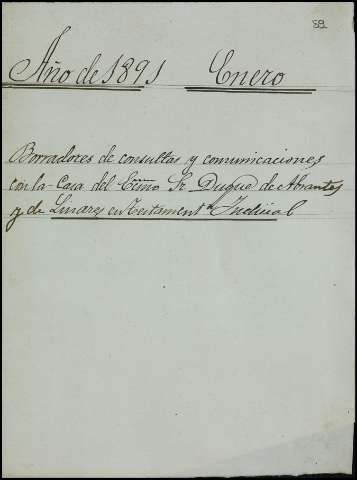 Año de 1891 Enero
Borradores de consultas y comunicaciones
con la Casa del Exmo Sr. Duque de Abrantes
y de Linares en Testament.ª Judicial